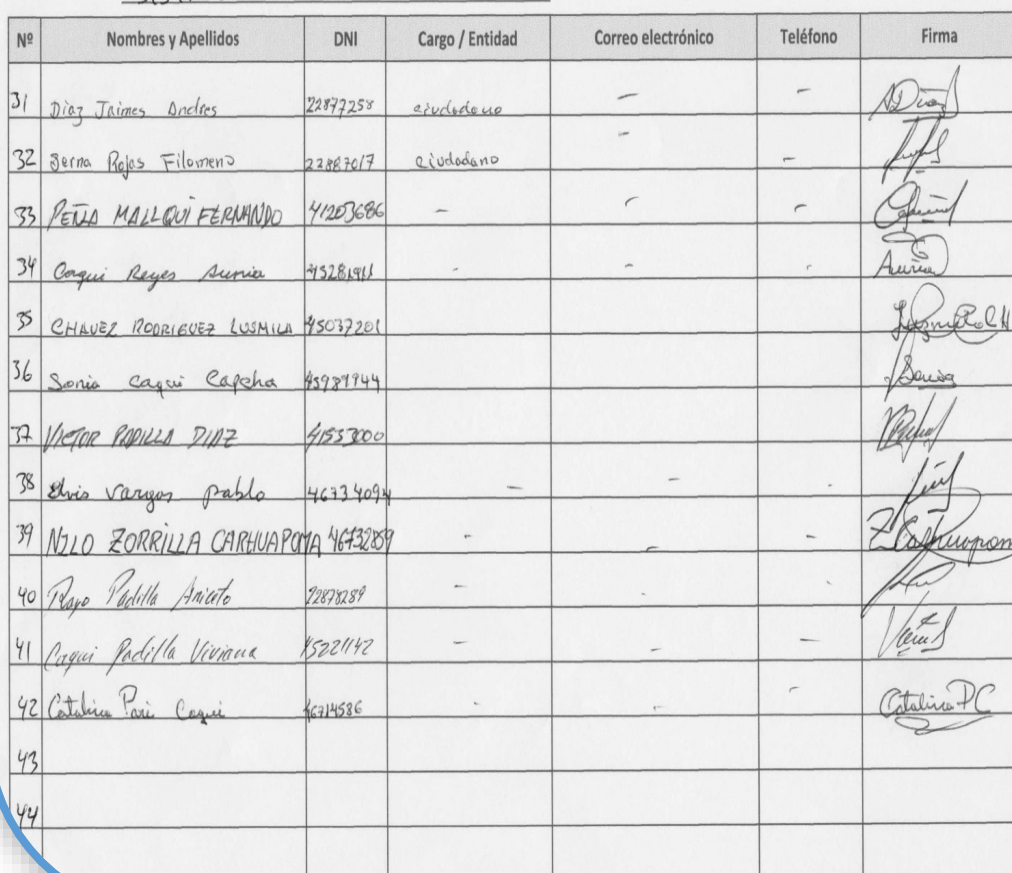 Nº Nombres y Apellidos DNI Cargo / Entidad Correo electrónico Teléfono Firma
31 Diaz Jaimes Andres 22877258 ciudadano - - ADiaz
32 Serna Rojas Filomeno 22887017 ciudadano - -
33 PEÑA MALLQUI FERNANDO 41203686 - - -
34 Caqui Reyes Aunia - - - Aunia
35 CHAVEZ RODRIGUEZ LUSMILA 45037201
36 Sonia caqui Capcha 43989944 Sonia
37 VICTOR PADILLA DIAZ 41533000
38 Elvis Vargas pablo 46734094 - - -
39 NILO ZORRILLA CARHUAPOMA 46732859 - - - Z Carhuapom
40 Rayo Padilla Aniceto 22878289 - - -
41 Caqui Padilla Viviana 45221142 - - -
42 Catalina Pari Caqui 46714586 - - - Catalina PC
43
44